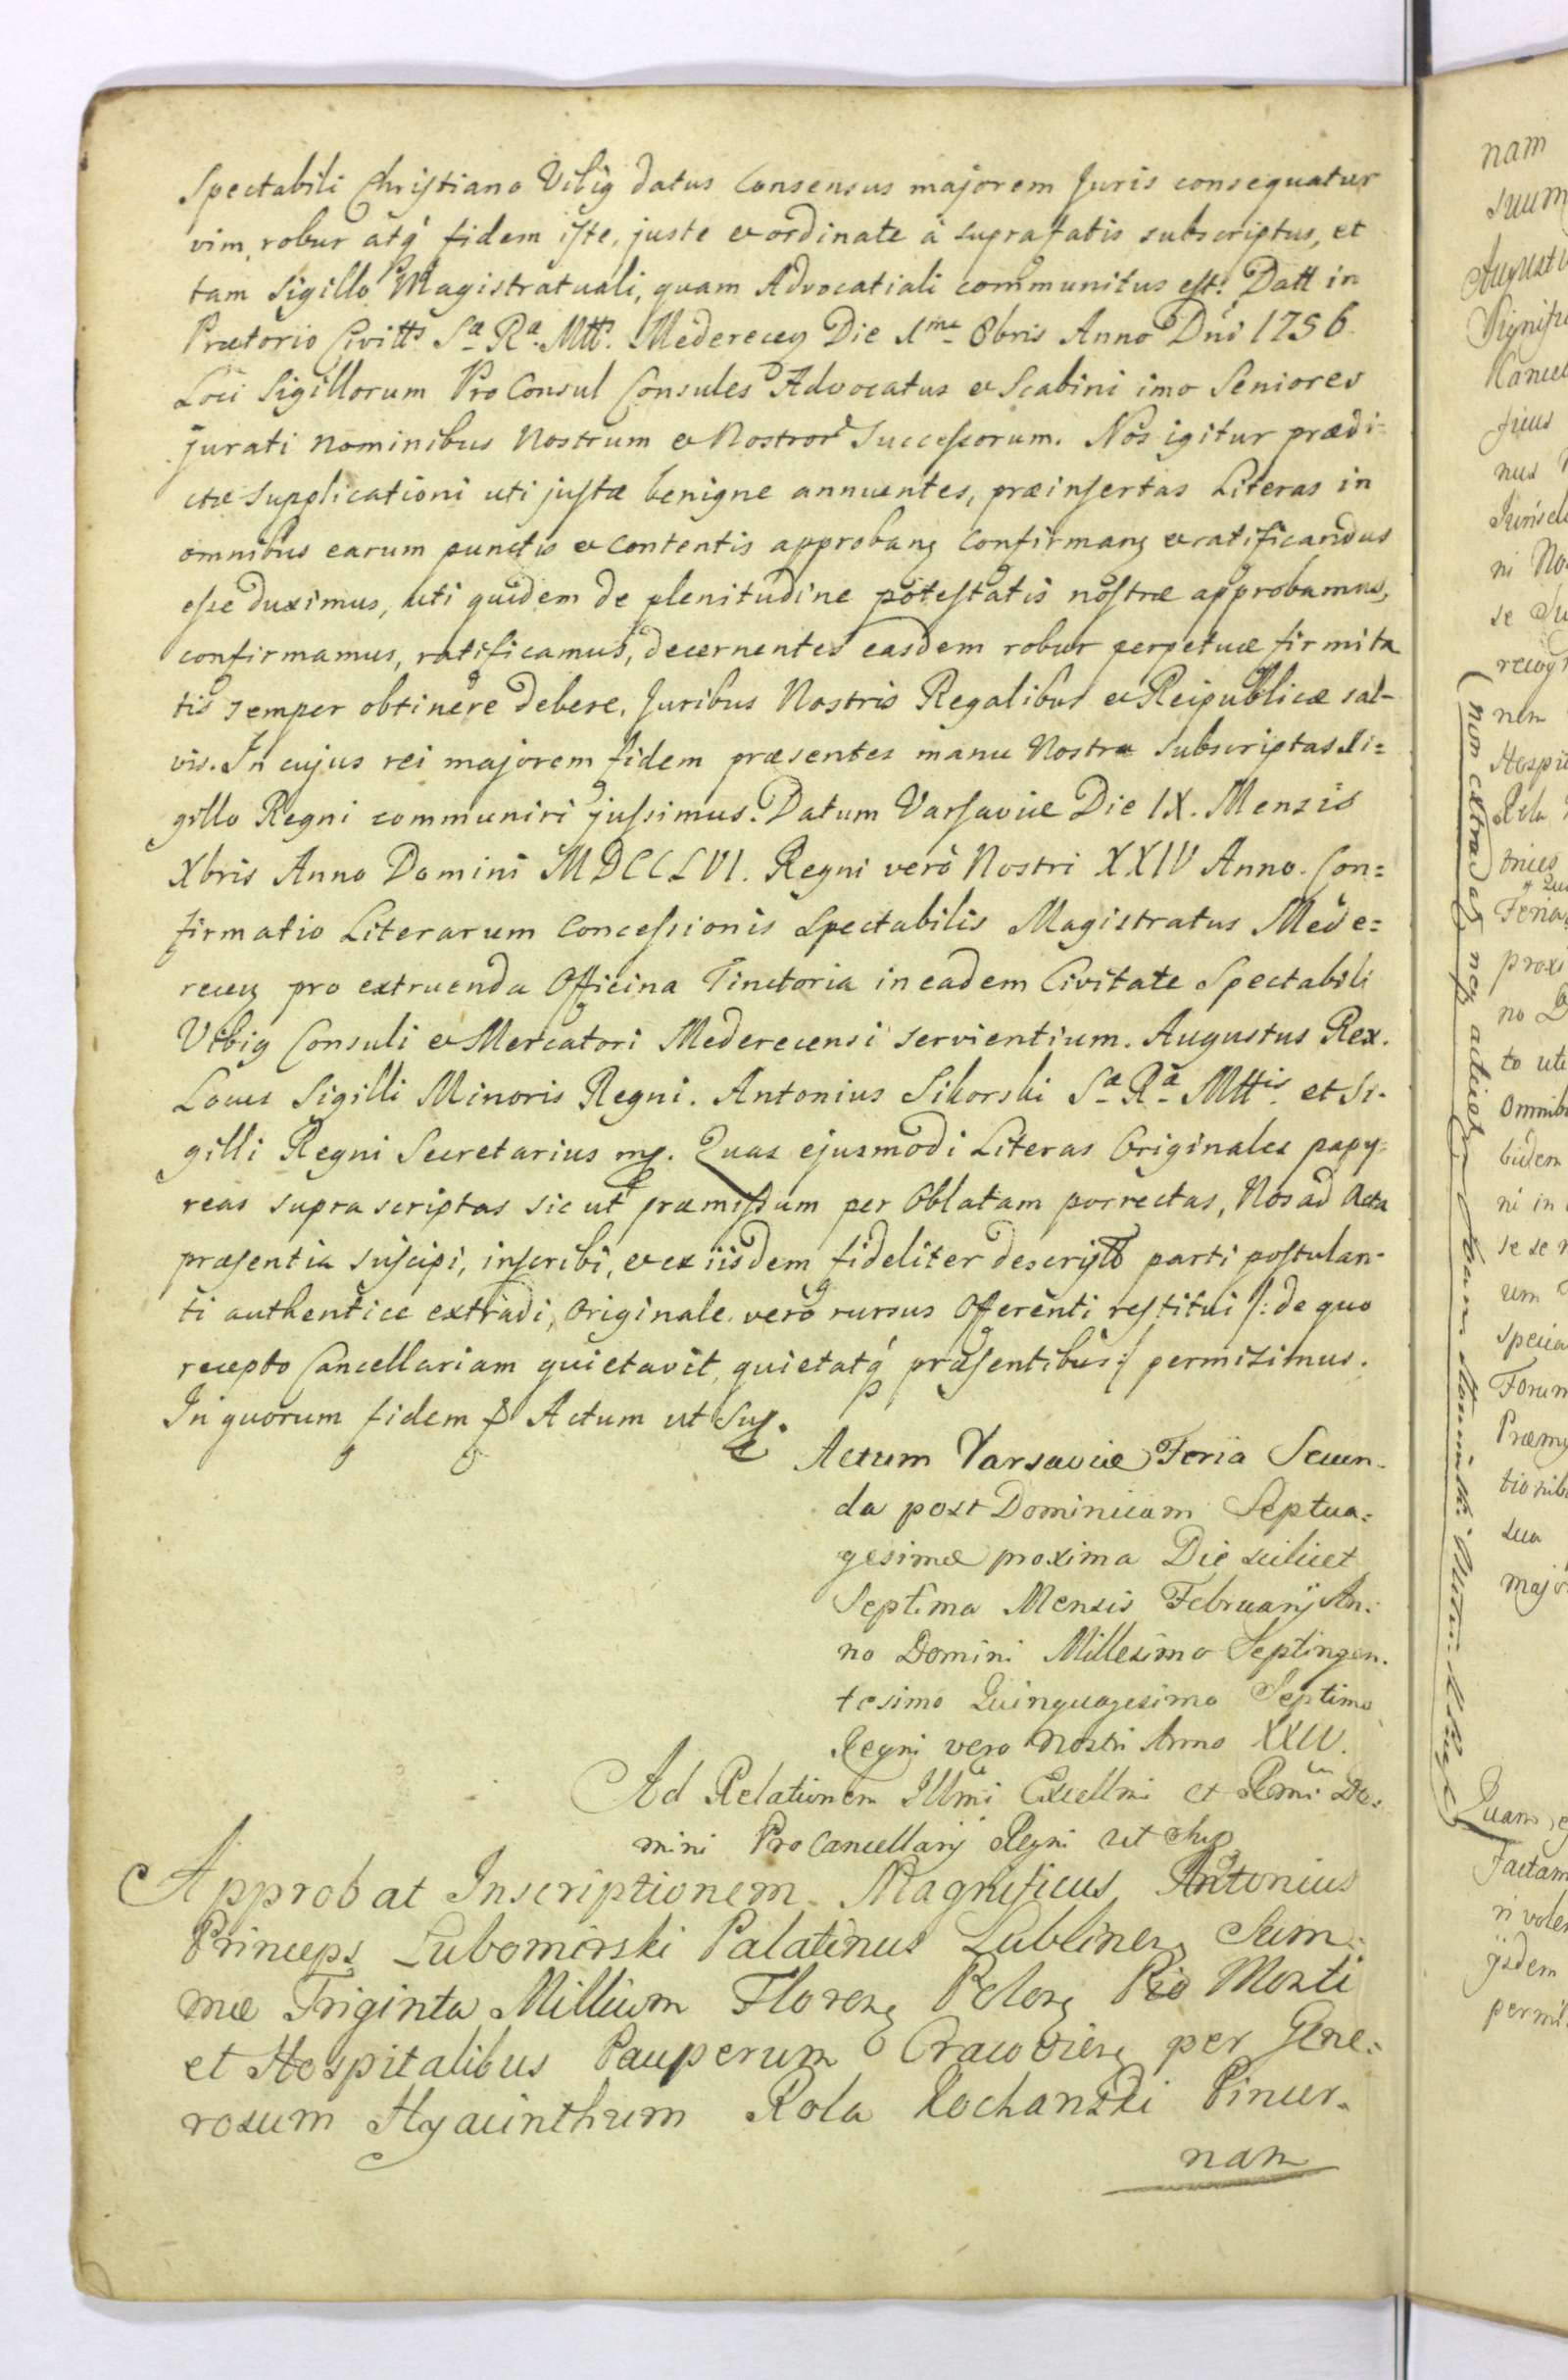 Spectabili Christiano Vibig datus Consensus majorem Juris consequatur
vim, robur atq́ fidem iste, juste et ordinate à suprafatis subscriptus, et
tam Sigillo Magistratuali, quam Advocatiali communitus est. Datt in
Prætorio Civitt. Sæ Ræ Mtt. Mederecen Die 1ma 8bris Anno Dni 1756
Loci Sigillorum Pro Consul Consules Advocatus et Scabini imo Seniores
jurati nominibus Nostrum et Nostror Successorum. Nos igitur prædi=
ctæ supplicationi uti justæ benigne annuentes, præinsertas Literas in
omnibus earum punctis et contentis approbanꝫ confirmanꝫ et ratificandus
esse duximus, uti quidem de plenitudine potestatis nostræ approbamus,
confirmamus, ratificamus, decernentes easdem robur perpetuæ firmita
tis semper obtinere debere, Juribus Nostris Regalibus et Reipublicæ sal-
vis. In cujus rei majorem fidem præsentes manu Nostra subscriptas Si=
gillo Regni communiri jussimus. Datum Varsaviæ Die IX. Mensis
Xbris Anno Domini MDCCLVI. Regni verò Nostri XXIV Anno. Con=
firmatio Literarum Concessionis Spectabilis Magistratus Mede=
recen pro extruenda Officina Tinctoria in eadem Civitate Spectabili
Vibig Consuli et Mercatori Mederecensi servientium. Augustus Rex.
Locus Sigilli Minoris Regni. Antonius Sikorski Sæ Ræ Mttis et Si-
gilli Regni Secretarius mp. Quas ejusmodi Literas Originales papy-
reas supra scriptas sic ut præmissum per Oblatam porrectas, Nos ad Acta
præsentia suscipi, inscribi, et ex iisdem fideliter descripto parti postulan-
ti authentice extradi, Originale vero rursus Offerenti restitui /: de quo
recepto Cancellariam quietavit, quietatq́ præsentibus :/ permisimus.
In quorum fidem Actum ut Sup.
Actum Varsaviæ Feria Secun-
da post Dominicam Septua=
gesimæ proxima Die scilicet
Septima Mensis Februarij An-
no Domini Millesimo Septingen-
tesimo Quinquagesimo Septimo
Regni vero Nostri Anno XXIV.
Ad Relationem Illmi Excellmi et Rmi Do-
mini Pro Cancellarij Regni ut Sup
Approbat Inscriptionem Magnificus Antonius
Princeps Lubomirski Palatinus Lublinenꝫ Sum-
mæ Triginta Millium Florenꝫ Polonꝫ Pio Monti
et Hospitalibus Pauperum Cracovienꝫ per Gene-
rosum Hyacinthum Rola Kochanski Pincer-
nam
nam
suum
nus
ni
se
nem
proxi
to uti
bidem
ni in
se se
um
specia
Forum
tionib
sua
major
Quam
Factam
ijsdem